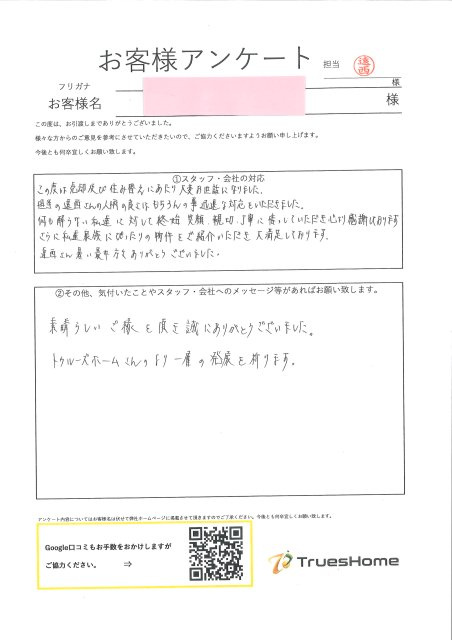 お客様アンケート
担当
遠西
フリガナ
様
お客様名
様
この度は、お引渡しまでありがとうございました。
様々な方からのご意見を参考にさせていただきたいので、ご協力くださいますようお願い申し上げます。
今後とも何卒宜しくお願い致します。
①スタッフ・会社の対応
この度は売却及び住み替えにあたり大変お世話になりました。
担当の遠西さんの人柄の良さはもちろんの事迅速な対応をいただきました。
何も解らない私達に対して終始笑顔、親切、丁寧に接していただき心より感謝しております
さらに私達家族にぴったりの物件をご紹介いただき大満足しております。
遠西さん暑い最中本当にありがとうございました。
②その他、気付いたことやスタッフ・会社へのメッセージ等があればお願い致します。
素晴らしいご縁を頂き誠にありがとうございました。
トゥルーズホームさんのより一層の発展を祈ります。
アンケート内容についてはお客様名は伏せて弊社ホームページに掲載させて頂きますのでご了承ください。今後とも何卒宜しくお願い致します。
Google口コミもお手数をおかけしますが
ご協力ください。 ⇒
TruesHome